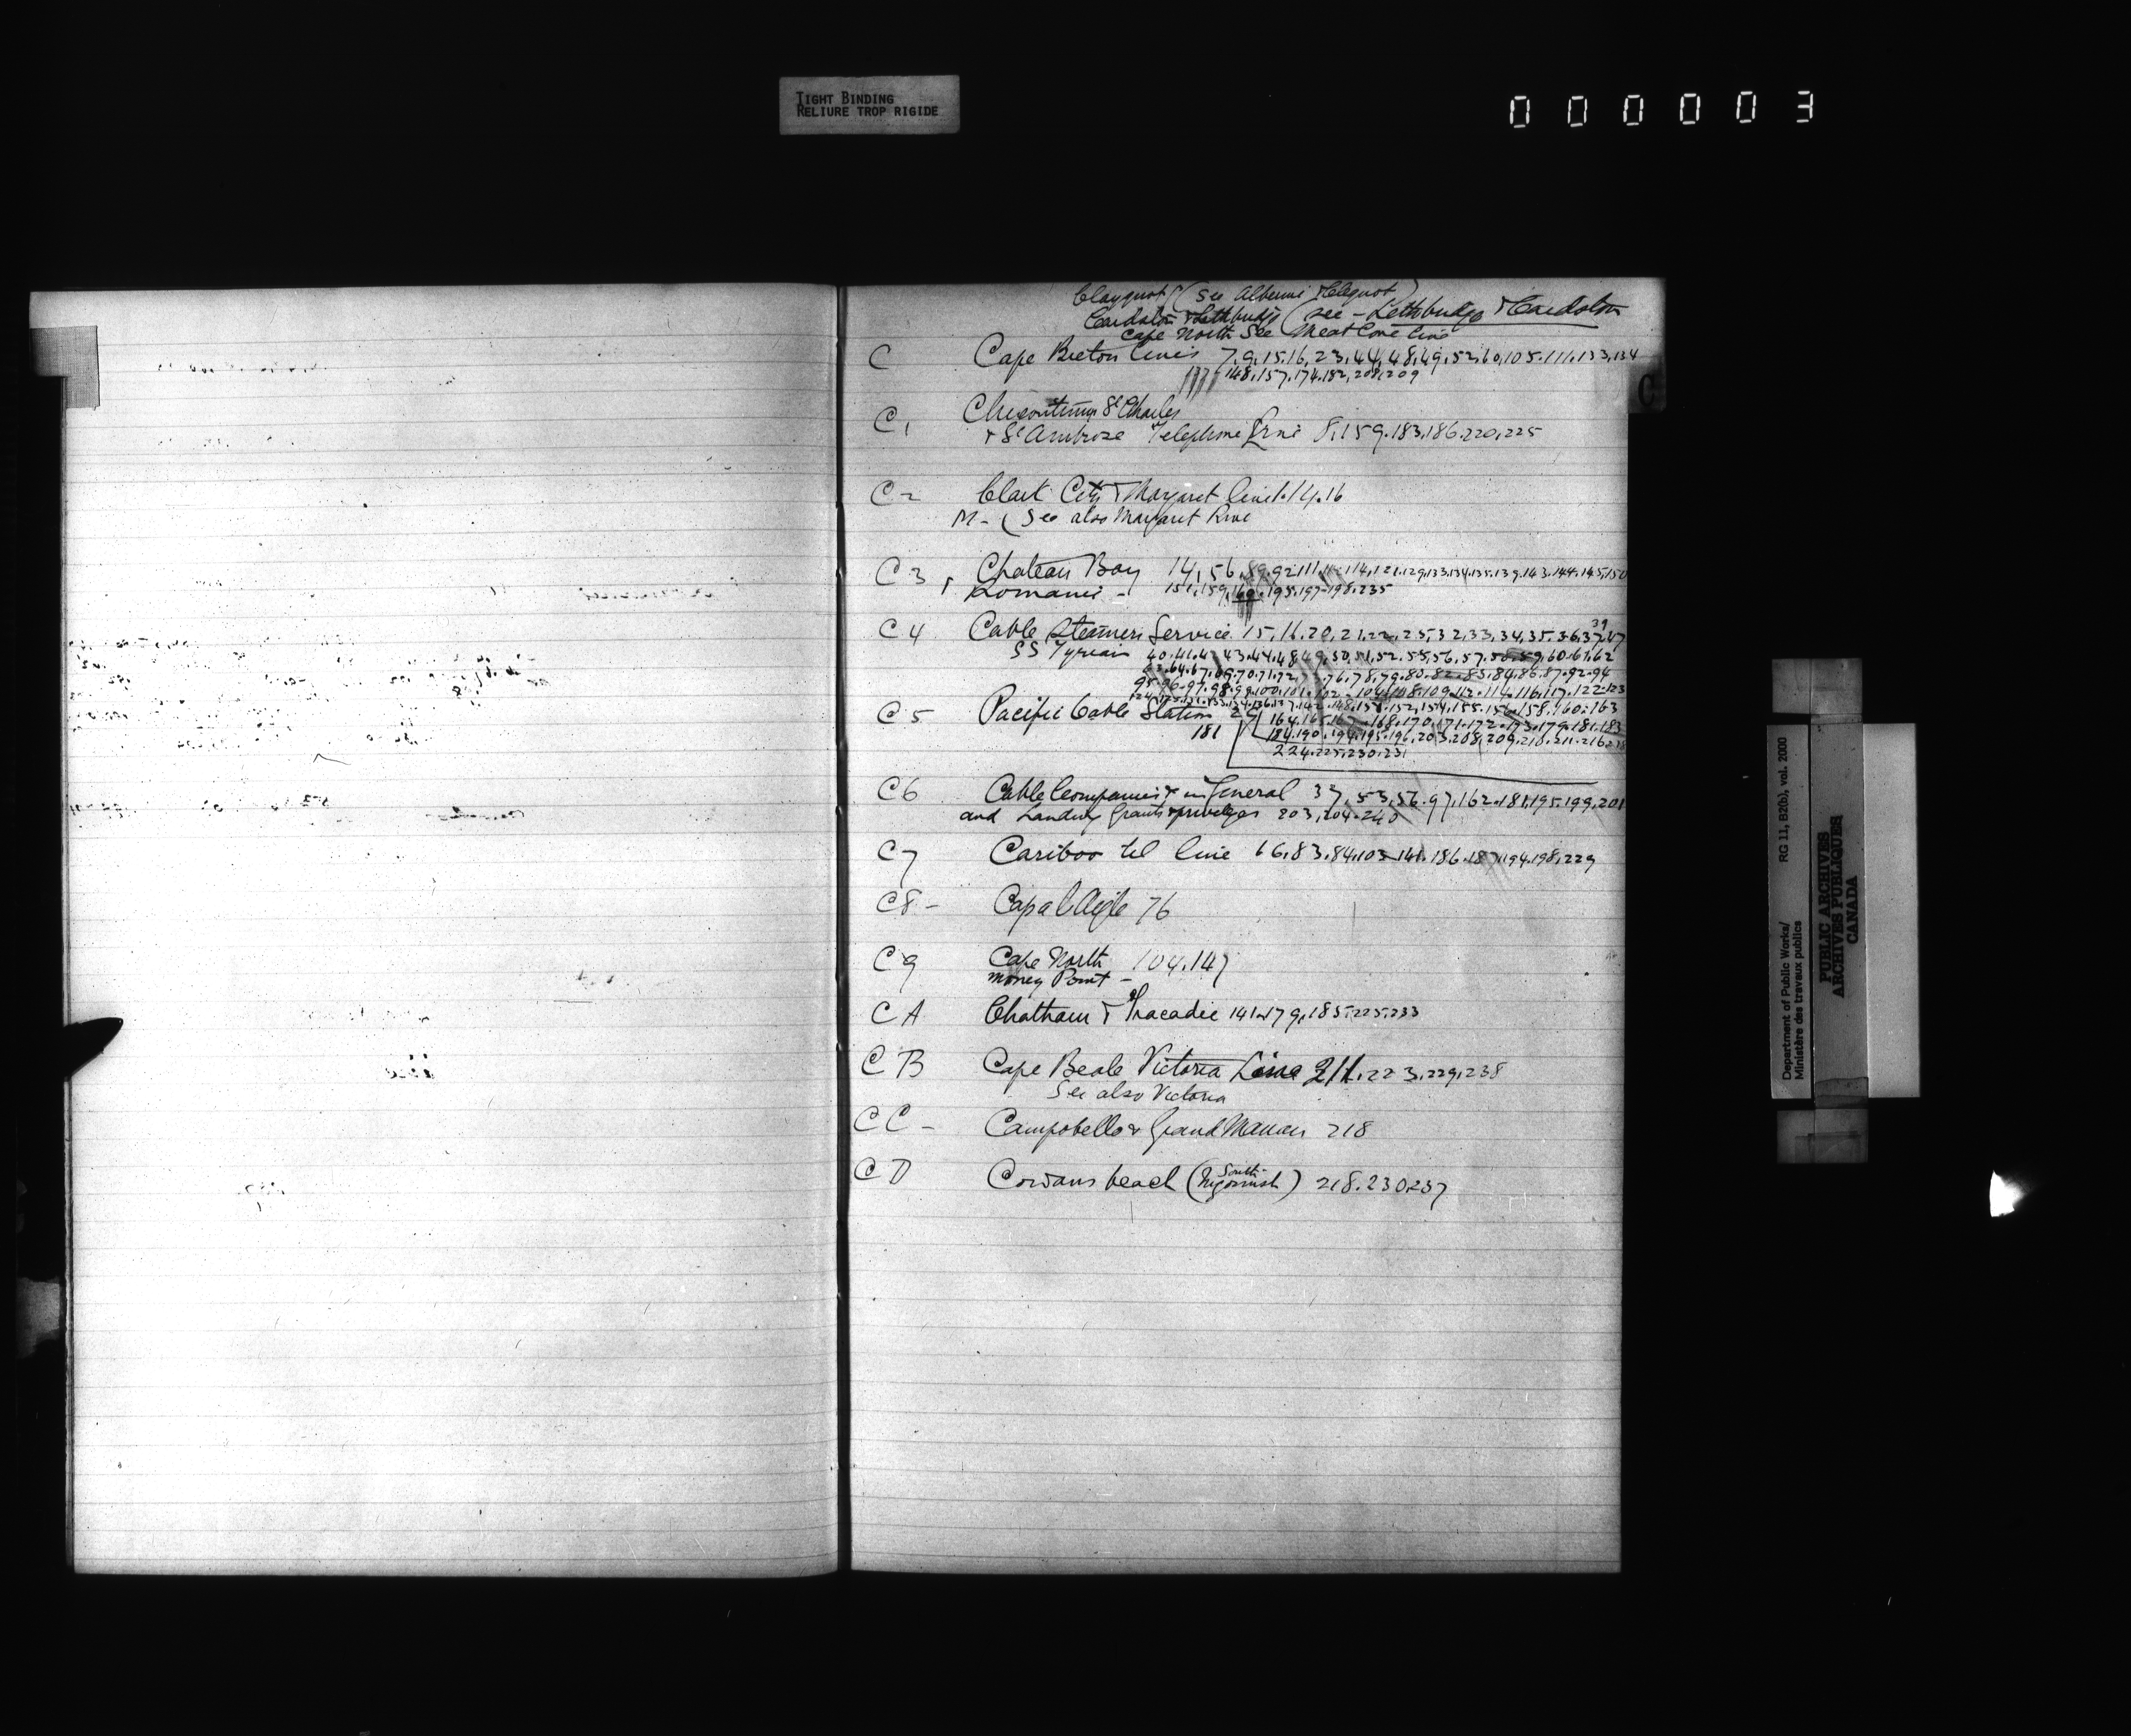 TIGHT BINDING
RELIURE TROP RIGIDE
000003
Clayoquot (See Alberni & Cloquot)
Cardston & Lethbridge (see - Lethbridge & Cardston
Cape North See Meat Cove line
C
C Cape Breton lines 7,9,15,16,23,44,48,49,52,60,105.111.133,134
148.157.174.182,208,209
C1 Chicoutimi St Charles
& St Ambroise Telephone Line 8,159.183,186.220,225
C2 Clark City & Margaret line 1.14.16
M- (See also Margaret River
C3 Chateau Bay 14,56,89.92.111.114,121.129.133.134.135.139.143.144.145,150
Romaine - 151,159,160.195.197-198.235
C4 Cable Steamers Service 15,16.20,21.22.25,32,33,34,35.36,37,47
39
SS Tyrian 40.41.42 43.44.48 49,50,51,52.55,56,57.58.59,60.61.62
63.64.67.69.70.71.72.75.76.78.79.80.82.83.84.86.87.92.94
95.96.97.98.99.100.101.102-104.108.109.112.114.116.117.122.123
C5 Pacific Cable Station 27
181
164.165.167.168.170.171.172.173.179.181.183
184.190.194.195.196.203.208,209.210.211.216
224.225.230.231
C6 Cable Companies in General 37,53,56.97,162.181,195.199,201
and Landing Grants & privileges 203,204.240
C7 Cariboo tel line 66.83.84.103.141.186.187.194.198.229
C8- Cap a l'Aigle 76
C9 Cape North 104.147
Money Point -
CA Chatham & Tracadie 141.179,185.225.233
CB Cape Beale Victoria Line 211.223.229,238
See also Victoria
CC- Campobello & Grand Manan 218
CD Cowans beach (South Merigomish) 218.230,237
Department of Public Works/
Ministère des travaux publics
RG 11, B2(b), vol. 2000
PUBLIC ARCHIVES
ARCHIVES PUBLIQUES
CANADA